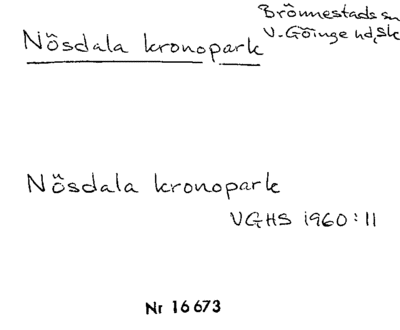 Brönnestads sn
V. Göinge hd, Sk
Nösdala kronopark
Nösdala kronopark
VGHS 1960:11
Nr 16673